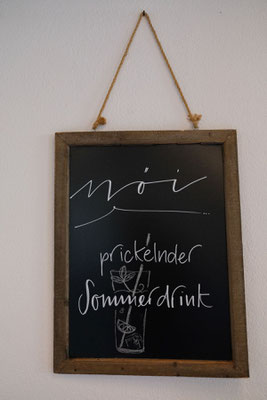 nói
prickelnder
Sommerdrink